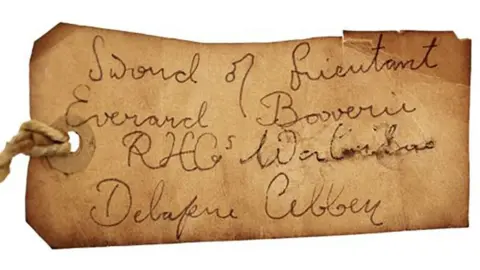 Sword of Lieutant
Everard Bouverie
RHGs Waterloo
Delapre Abbey